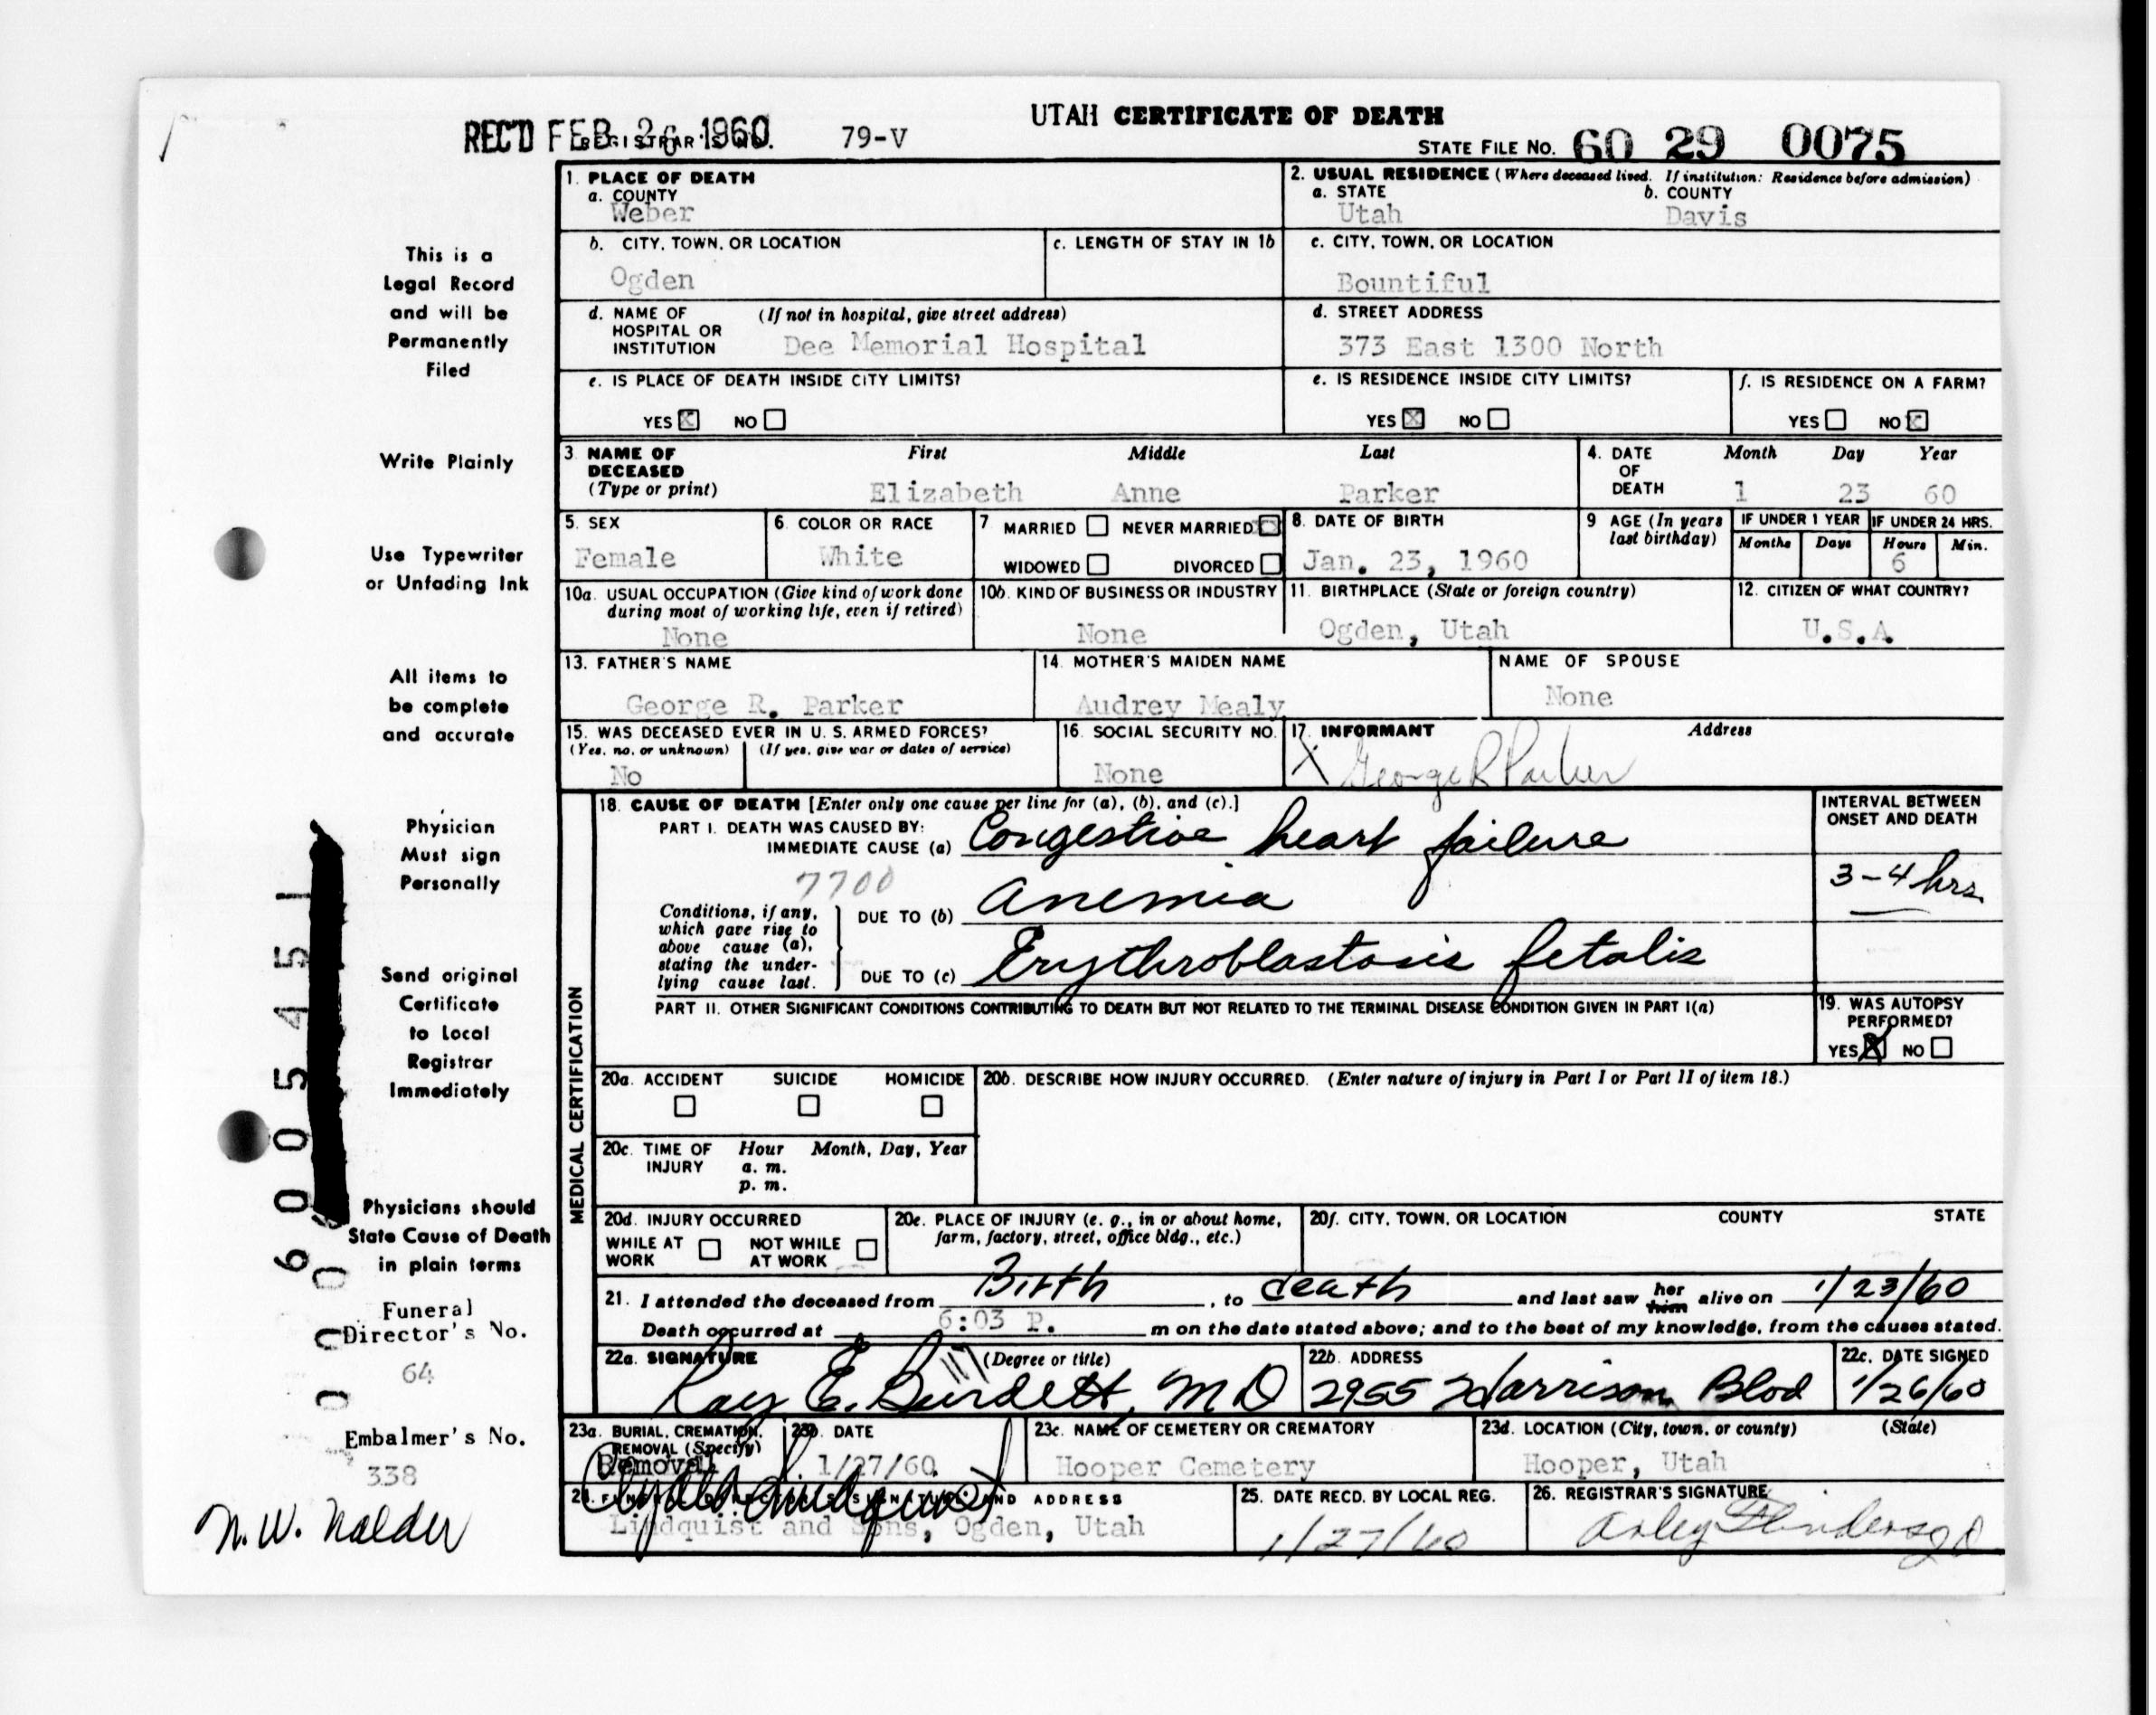 UTAH CERTIFICATE OF DEATH
REC'D FEB 26 1960
REGISTRAR'S NO. 79-V
STATE FILE NO. 60 29 0075
This is a
Legal Record
and will be
Permanently
Filed
Write Plainly
Use Typewriter
or Unfading Ink
All items to
be complete
and accurate
Physician
Must sign
Personally
Send original
Certificate
to Local
Registrar
Immediately
Physicians should
State Cause of Death
in plain terms
Funeral
Director's No.
64
Embalmer's No.
338
N. W. Nalder
6005451
1. PLACE OF DEATH
a. COUNTY
Weber
2. USUAL RESIDENCE (Where deceased lived. If institution: Residence before admission)
a. STATE b. COUNTY
Utah Davis
b. CITY, TOWN, OR LOCATION c. LENGTH OF STAY IN 1b
Ogden
c. CITY, TOWN, OR LOCATION
Bountiful
d. NAME OF HOSPITAL OR INSTITUTION (If not in hospital, give street address)
Dee Memorial Hospital
d. STREET ADDRESS
373 East 1300 North
e. IS PLACE OF DEATH INSIDE CITY LIMITS?
YES X NO
e. IS RESIDENCE INSIDE CITY LIMITS?
YES X NO
f. IS RESIDENCE ON A FARM?
YES NO X
3. NAME OF DECEASED (Type or print) First Middle Last
Elizabeth Anne Parker
4. DATE OF DEATH Month Day Year
1 23 60
5. SEX
Female
6. COLOR OR RACE
White
7. MARRIED NEVER MARRIED X
WIDOWED DIVORCED
8. DATE OF BIRTH
Jan. 23, 1960
9 AGE (In years last birthday)
IF UNDER 1 YEAR IF UNDER 24 HRS.
Months Days Hours Min.
6
10a. USUAL OCCUPATION (Give kind of work done during most of working life, even if retired)
None
10b. KIND OF BUSINESS OR INDUSTRY
None
11. BIRTHPLACE (State or foreign country)
Ogden, Utah
12. CITIZEN OF WHAT COUNTRY?
U.S.A.
13. FATHER'S NAME
George R. Parker
14. MOTHER'S MAIDEN NAME
Audrey Mealy
NAME OF SPOUSE
None
15. WAS DECEASED EVER IN U. S. ARMED FORCES?
(Yes, no, or unknown) (If yes, give war or dates of service)
No
16. SOCIAL SECURITY NO.
None
17. INFORMANT Address
X George R Parker
MEDICAL CERTIFICATION
18. CAUSE OF DEATH [Enter only one cause per line for (a), (b), and (c).]
PART I. DEATH WAS CAUSED BY:
IMMEDIATE CAUSE (a) Congestive heart failure
7700
Conditions, if any, which gave rise to above cause (a), stating the underlying cause last.
DUE TO (b) Anemia
DUE TO (c) Erythroblastosis fetalis
INTERVAL BETWEEN ONSET AND DEATH
3-4 hrs.
PART II. OTHER SIGNIFICANT CONDITIONS CONTRIBUTING TO DEATH BUT NOT RELATED TO THE TERMINAL DISEASE CONDITION GIVEN IN PART I(a)
19. WAS AUTOPSY PERFORMED?
YES X NO
20a. ACCIDENT SUICIDE HOMICIDE
20b. DESCRIBE HOW INJURY OCCURRED. (Enter nature of injury in Part I or Part II of item 18.)
20c. TIME OF INJURY Hour Month, Day, Year
a. m.
p. m.
20d. INJURY OCCURRED
WHILE AT WORK NOT WHILE AT WORK
20e. PLACE OF INJURY (e. g., in or about home, farm, factory, street, office bldg., etc.)
20f. CITY, TOWN, OR LOCATION COUNTY STATE
21. I attended the deceased from Birth, to death and last saw her him alive on 1/23/60
Death occurred at 6:03 P. m on the date stated above; and to the best of my knowledge, from the causes stated.
22a. SIGNATURE (Degree or title)
Ray E. Burdett, MD
22b. ADDRESS
2955 Harrison Blvd
22c. DATE SIGNED
1/26/60
23a. BURIAL, CREMATION, REMOVAL (Specify)
Removal
23b. DATE
1/27/60
23c. NAME OF CEMETERY OR CREMATORY
Hooper Cemetery
23d. LOCATION (City, town, or county) (State)
Hooper, Utah
24. FUNERAL DIRECTOR'S SIGNATURE AND ADDRESS
Lindquist and Sons, Ogden, Utah
25. DATE RECD. BY LOCAL REG.
1/27/60
26. REGISTRAR'S SIGNATURE